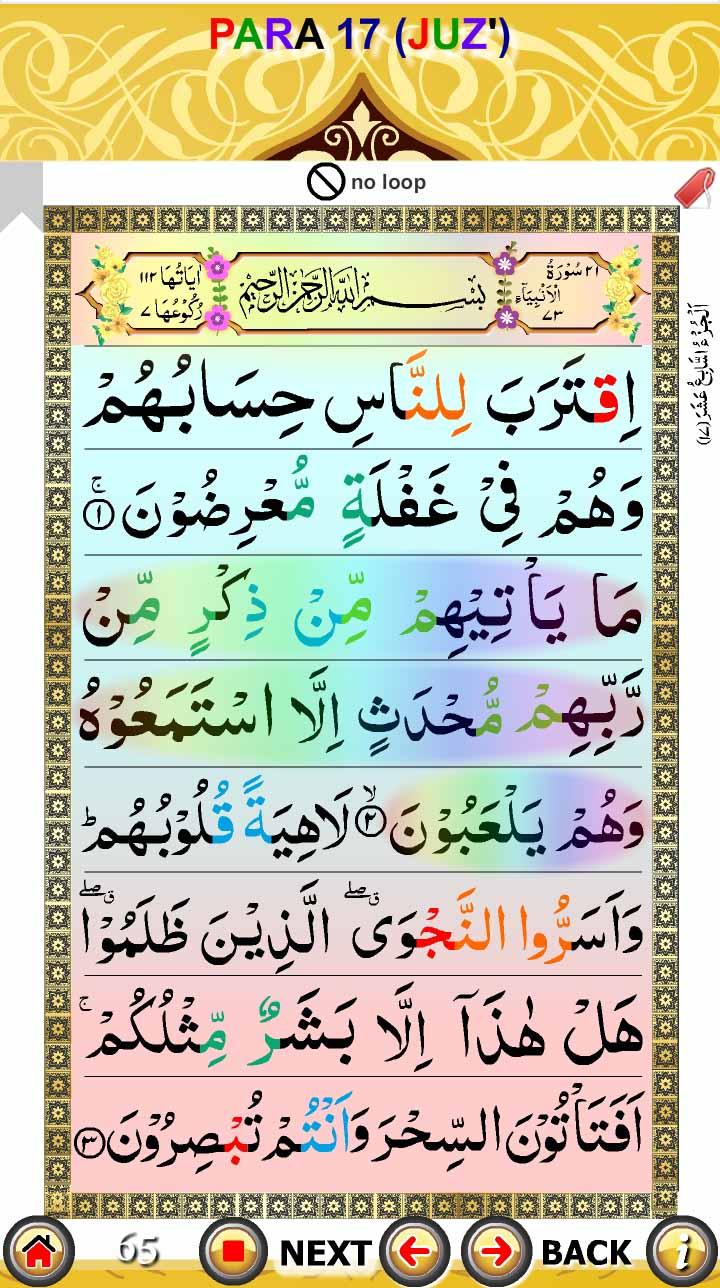 PARA 17 (JUZ')
no loop
٢١ سُوْرَةُ الْاَنْۢبِيَآءِ ٧٣
بِسْمِ اللّٰهِ الرَّحْمٰنِ الرَّحِيْمِ
اٰيَاتُهَا ١١٢
رُكُوْعُهَا ٧
اَلْجُزْءُ السَّابِعُ عَشَرَ (١٧)
اِقْتَرَبَ لِلنَّاسِ حِسَابُهُمْ
وَهُمْ فِيْ غَفْلَةٍ مُّعْرِضُوْنَ ۚ ١
مَا يَاْتِيْهِمْ مِّنْ ذِكْرٍ مِّنْ
رَّبِّهِمْ مُّحْدَثٍ اِلَّا اسْتَمَعُوْهُ
وَهُمْ يَلْعَبُوْنَ ۙ ٢ لَاهِيَةً قُلُوْبُهُمْ ؕ
وَاَسَرُّوا النَّجْوَى ۖق الَّذِيْنَ ظَلَمُوْا ۖق
هَلْ هٰذَآ اِلَّا بَشَرٌ مِّثْلُكُمْ ۚ
اَفَتَاْتُوْنَ السِّحْرَ وَاَنْتُمْ تُبْصِرُوْنَ ٣
65 NEXT BACK i